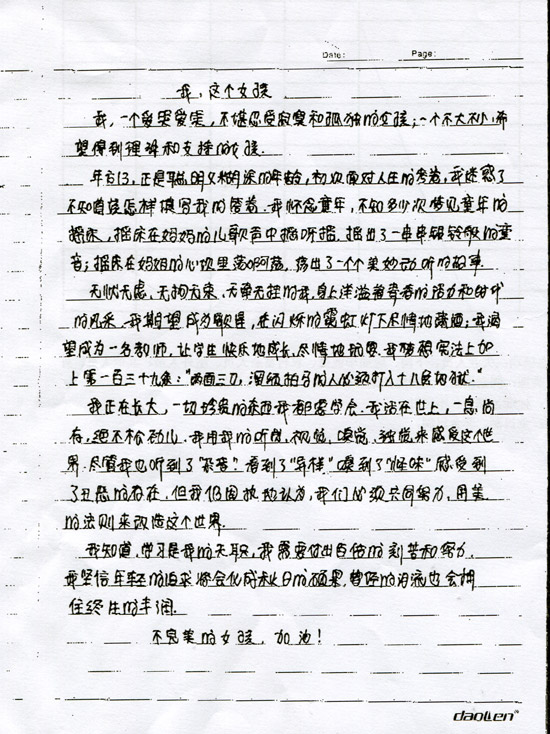 Date: Page:
我,这个女孩
我,一个爱哭爱笑,不堪忍受寂寞和孤独的女孩;一个不大不小,希
望得到理解和支持的女孩.
年方13,正是聪明又糊涂的年龄,初次面对人生的答卷,我迷惑了
不知道该怎样填写我的答卷.我怀念童年,不知多少次梦见童年的
摇床,摇床在妈妈的儿歌声中摇呀摇.摇出了一串串银铃般的童
音;摇床在妈妈的心坎里荡啊荡,荡出了一个个美妙动听的故事.
无忧无虑,无拘无束,无牵无挂的我,身上洋溢着青春的活力和时代
的风采.我期望成为歌星,在闪烁的霓虹灯下尽情地潇洒;我渴
望成为一名教师,让学生快乐地成长,尽情地玩耍.我有权在宪法上加
上第一百三十九条:"两面三刀,溜须拍马的人必须打入十八层地狱."
我正在长大,一切珍贵的东西我都要学会.我站在世上,一息尚
存,绝不松劲儿.我用我的听觉,视觉,嗅觉,触觉来感受这个世
界.尽管我也听到了"噪音"看到了"异样"嗅到了"怪味"感受到
了丑恶的存在.但我仍固执地认为,我们必须共同努力,用美
的法则来改造这个世界.
我知道,学习是我的天职,我需要付出百倍的刻苦和努力.
我坚信年轻的追求将会化成秋日的硕果,曾经的泪流也会拥
住终生的丰润.
不完美的女孩,加油!
daolen